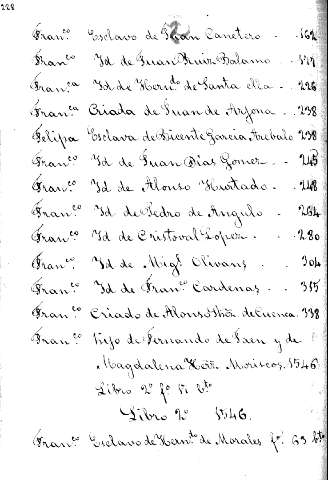 228
2
Fran.co Esclavo de Juan Canetero . . 162
Fran.co Id de Juan Ruiz Balamo . .
Fran.ca Id de Hern.do de Santa ella . . 226
Fran.ca Criada de Juan de Arjona . . 238
Felipa Esclava de Vicente Garcia Arebalo 238
Fran.co Id de Juan Dias Gomez . . 245
Fran.co Id de Alonso Hurtado . . 248
Fran.co Id de Pedro de Angulo . . 264
Fran.co Id de Cristoval Lopez . . 280
Fran.co Id de Mig.l Olivans . . 304
Fran.co Id de Fran.co Cardenas . . 315
Fran.co Criado de Alonso de Cuenca 338
Fran.co Hijo de Fernando de Jaen y de
Magdalena Moriscos. 1546
Libro 2º fº 11 bto
Libro 2º 1546.
Fran.co Esclavo de Hern.do de Morales fº 63 bto